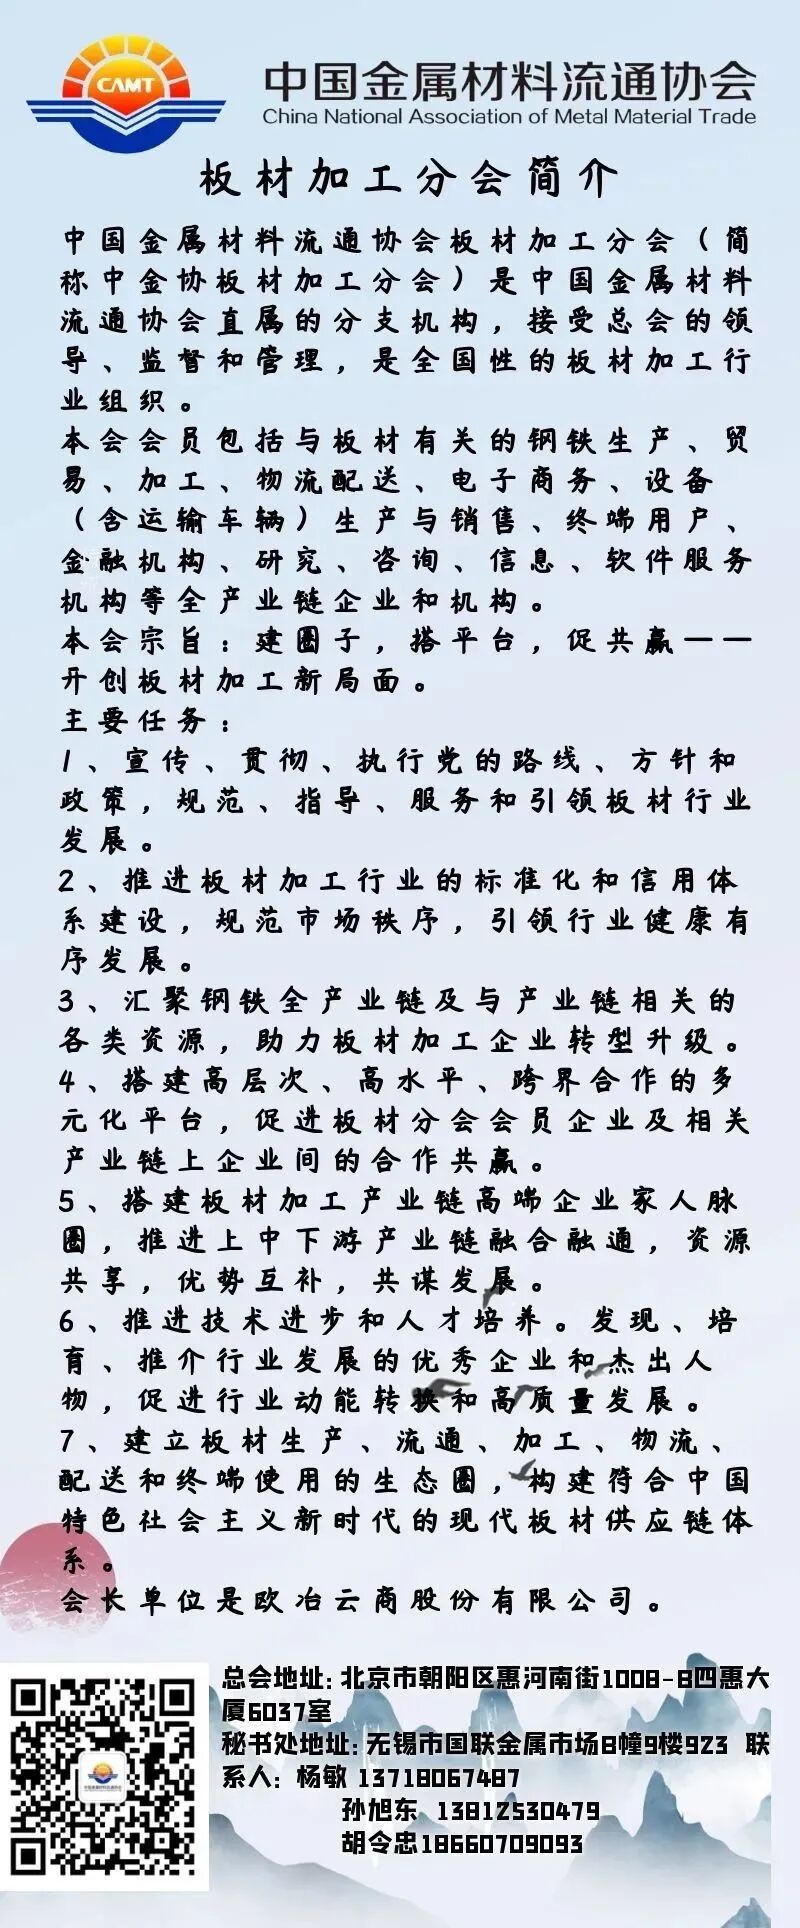 CAMT
中国金属材料流通协会
China National Association of Metal Material Trade
板材加工分会简介
中国金属材料流通协会板材加工分会（简
称中金协板材加工分会）是中国金属材料
流通协会直属的分支机构，接受总会的领
导、监督和管理，是全国性的板材加工行
业组织。
本会会员包括与板材有关的钢铁生产、贸
易、加工、物流配送、电子商务、设备
（含运输车辆）生产与销售、终端用户、
金融机构、研究、咨询、信息、软件服务
机构等全产业链企业和机构。
本会宗旨：建圈子，搭平台，促共赢——
开创板材加工新局面。
主要任务：
1、宣传、贯彻、执行党的路线、方针和
政策，规范、指导、服务和引领板材行业
发展。
2、推进板材加工行业的标准化和信用体
系建设，规范市场秩序，引领行业健康有
序发展。
3、汇聚钢铁全产业链及与产业链相关的
各类资源，助力板材加工企业转型升级。
4、搭建高层次、高水平、跨界合作的多
元化平台，促进板材分会会员企业及相关
产业链上企业间的合作共赢。
5、搭建板材加工产业链高端企业家人脉
圈，推进上中下游产业链融合融通，资源
共享，优势互补，共谋发展。
6、推进技术进步和人才培养。发现、培
育、推介行业发展的优秀企业和杰出人
物，促进行业动能转换和高质量发展。
7、建立板材生产、流通、加工、物流、
配送和终端使用的生态圈，构建符合中国
特色社会主义新时代的现代板材供应链体
系。
会长单位是欧冶云商股份有限公司。
总会地址：北京市朝阳区惠河南街1008-B四惠大
厦6037室
秘书处地址：无锡市国联金属市场8幢9楼923 联
系人：杨敏 13718067487
孙旭东 13812530479
胡令忠18660709093
中国金属材料流通协会